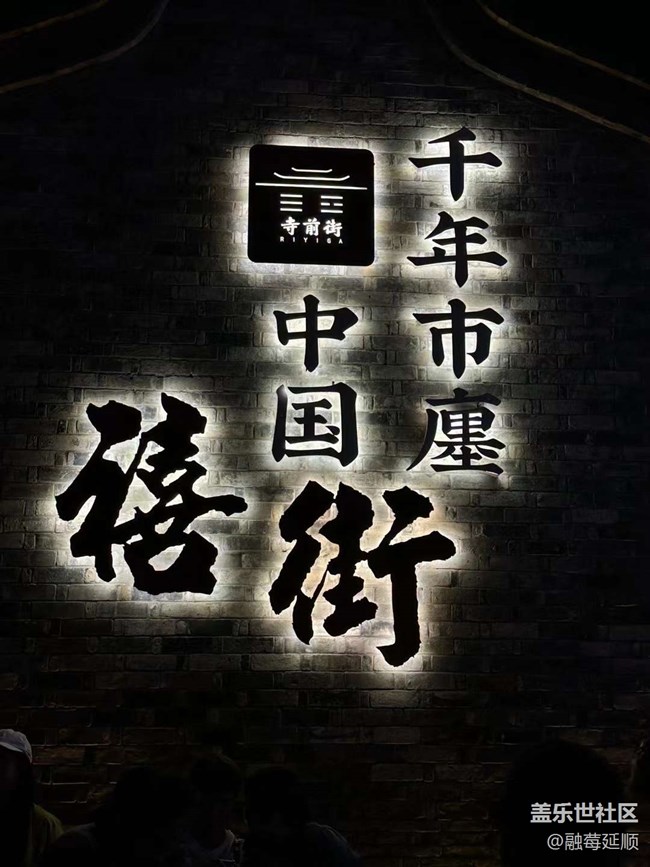 千年市廛
中国
禧街
寺前街
RIYIGA
盖乐世社区
@融莓延顺